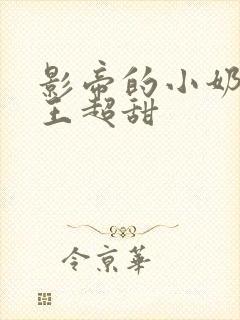 影帝的小奶
王超甜
令京華